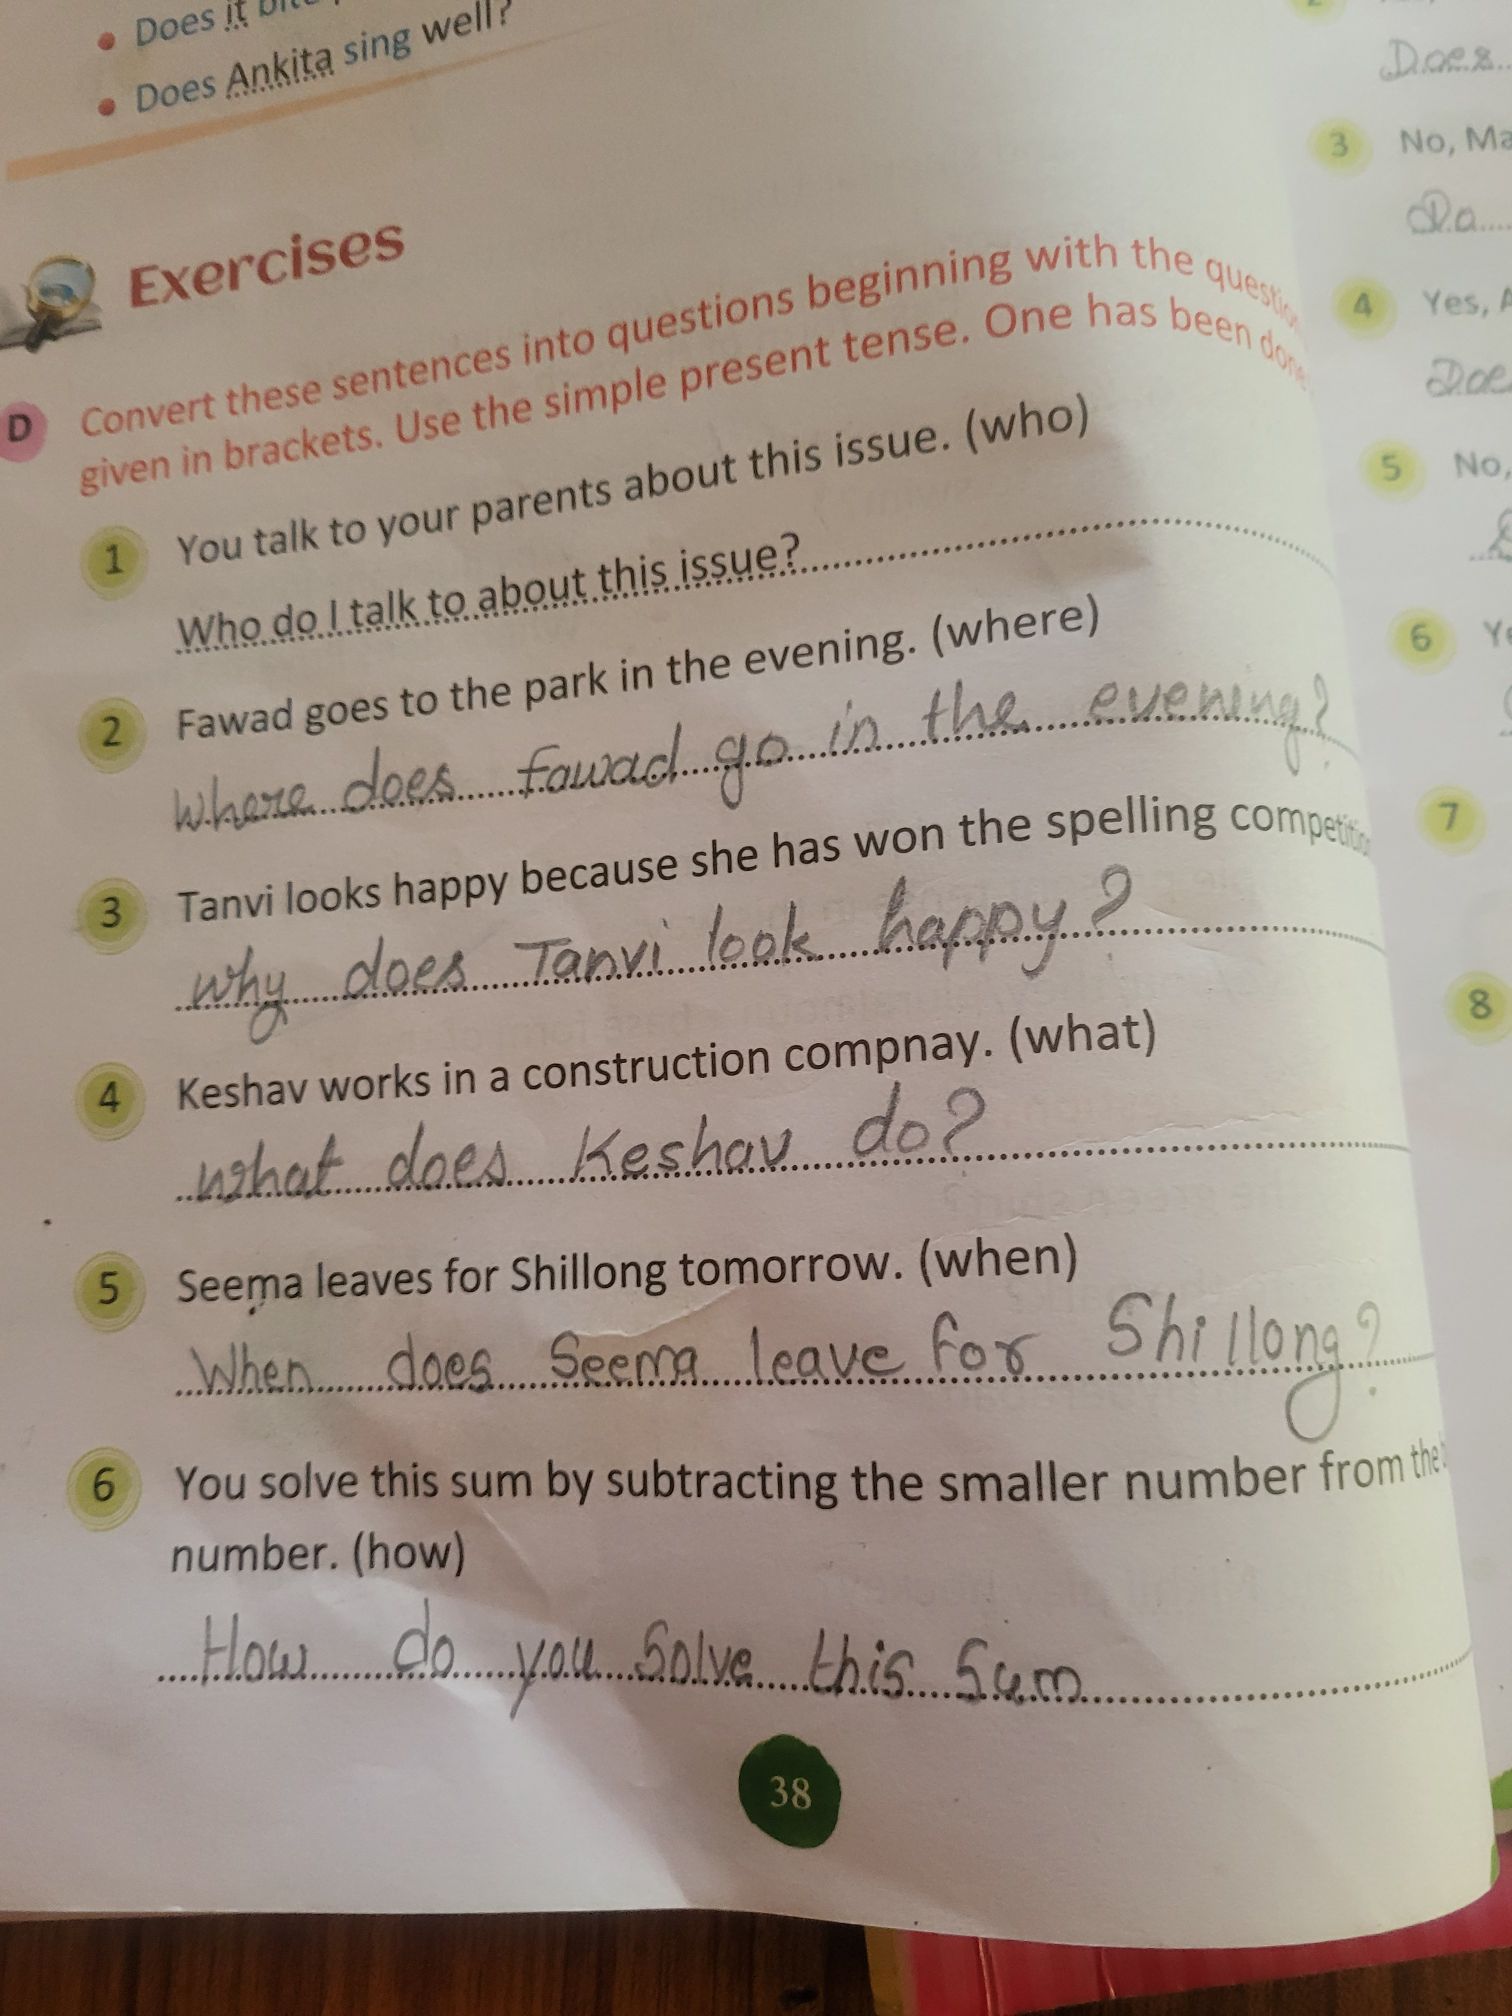 Does it
Does Ankita sing well?
Exercises
D Convert these sentences into questions beginning with the question
given in brackets. Use the simple present tense. One has been done
1 You talk to your parents about this issue. (who)
Who do I talk to about this issue?
2 Fawad goes to the park in the evening. (where)
Where does fawad go in the evening?
3 Tanvi looks happy because she has won the spelling competitio
why does Tanvi look happy?
4 Keshav works in a construction compnay. (what)
what does Keshav do?
5 Seema leaves for Shillong tomorrow. (when)
When does Seema leave for Shillong?
6 You solve this sum by subtracting the smaller number from the
number. (how)
How do you Solve this Sum
38
Does
3 No, Ma
Do
4 Yes, A
Doe
5 No,
6 Ye
7
8